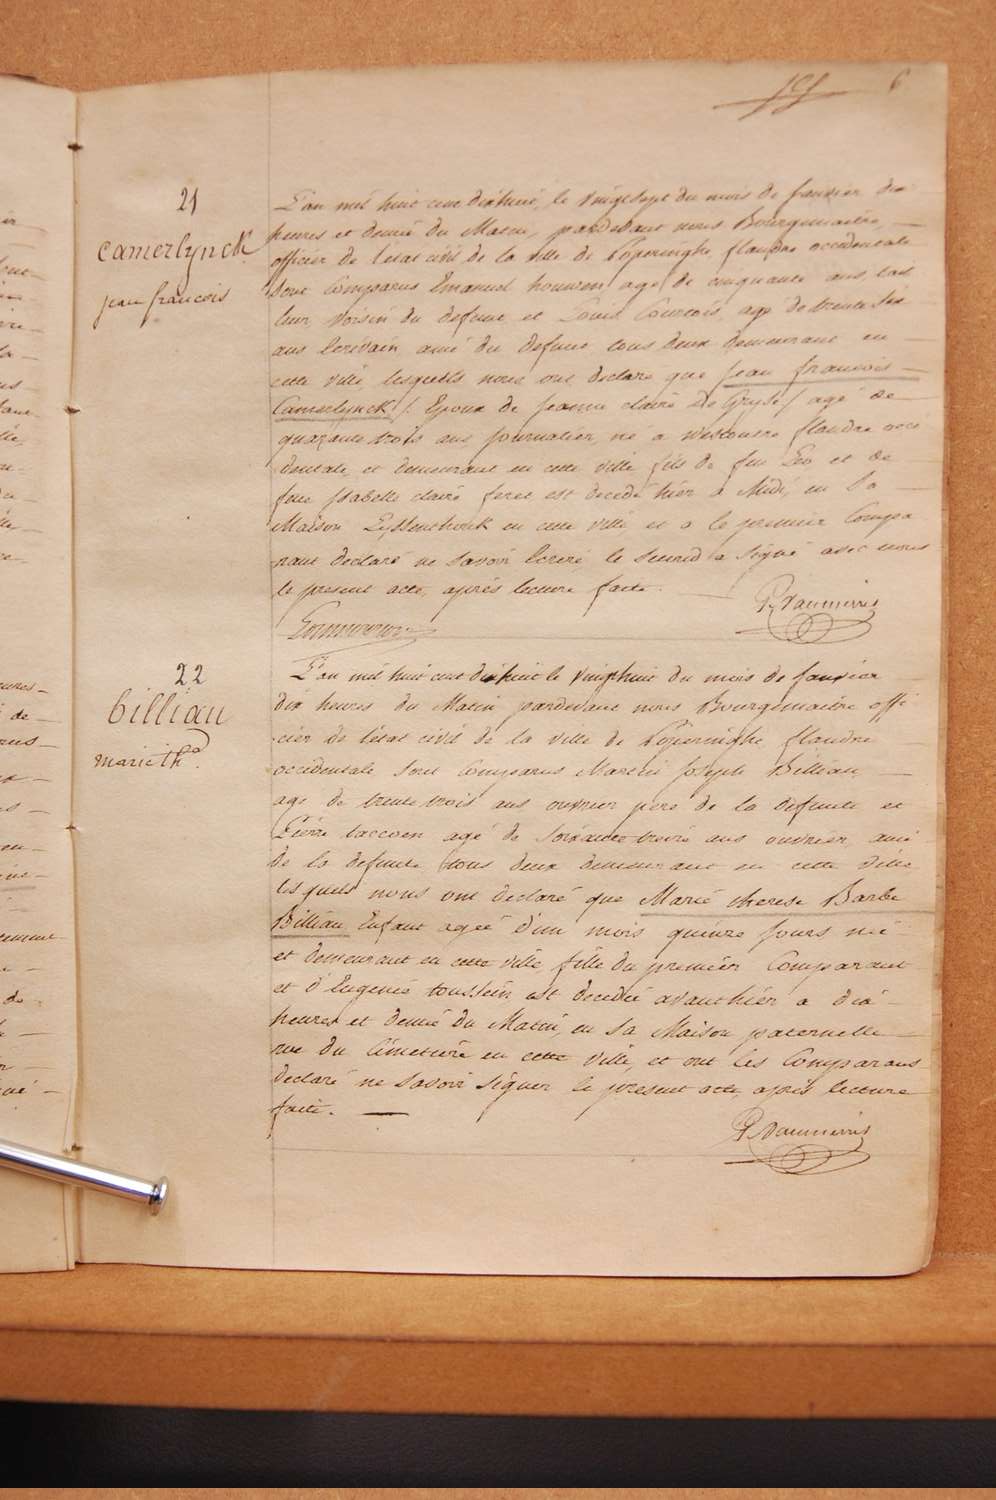 6
21
camerlynck
jean francois
L'an mil huit cent dixhuit, le vingtsept du mois de janvier dix
heures et demie du Matin, pardevant nous Bourguemaitre,
officier de l'etat civil de la ville de Poperinghe flandre occidentale
sont Comparus Emanuel houwen agé de cinquante ans, tail
leur, voisin du defunt et Louis Courtois, agé de trente six
ans Ecrivain, ami du defunt tous deux demeurant en
cette ville, lesquels nous ont declaré que jean francois
Camerlynck /: Epoux de jeanne claire De Gryse / agé de
quarante trois ans journalier, né a westoutre flandre occi
dentale, et demeurant en cette ville fils de feu Leo et de
feue isabelle claire feret est decedé hier a Midi, en Sa
Maison en cette ville, et a le premier Compa
rant declaré ne savoir Ecrire, le second a signé avec nous
le present acte, après lecture faite.
22
billiau
marie th.a
L'an mil huit cent dixhuit le vingthuit du mois de janvier
dix heures du Matin pardevant nous Bourguemaitre offi
cier de l'état civil de la ville de Poperinghe, flandre
occidentale sont Comparus Martin joseph Billiau,
agé de trente trois ans ouvrier père de la defunte et
Pierre baccoen agé de soixante treize ans ouvrier, ami
de la defunte, tous deux demeurant en cette ville
lesquels nous ont declaré que Marie therese Barbe
Billiau Enfant agée d'un mois quinze jours née
et demeurant en cette ville, fille du premier Comparant
et d'Eugenie toussein, est decedée avanthier a dix
heures et demie du Matin, en sa Maison paternelle
rue du Cimetière en cette ville, et ont les Comparans
declaré ne savoir signer le present acte, après lecture
faite.